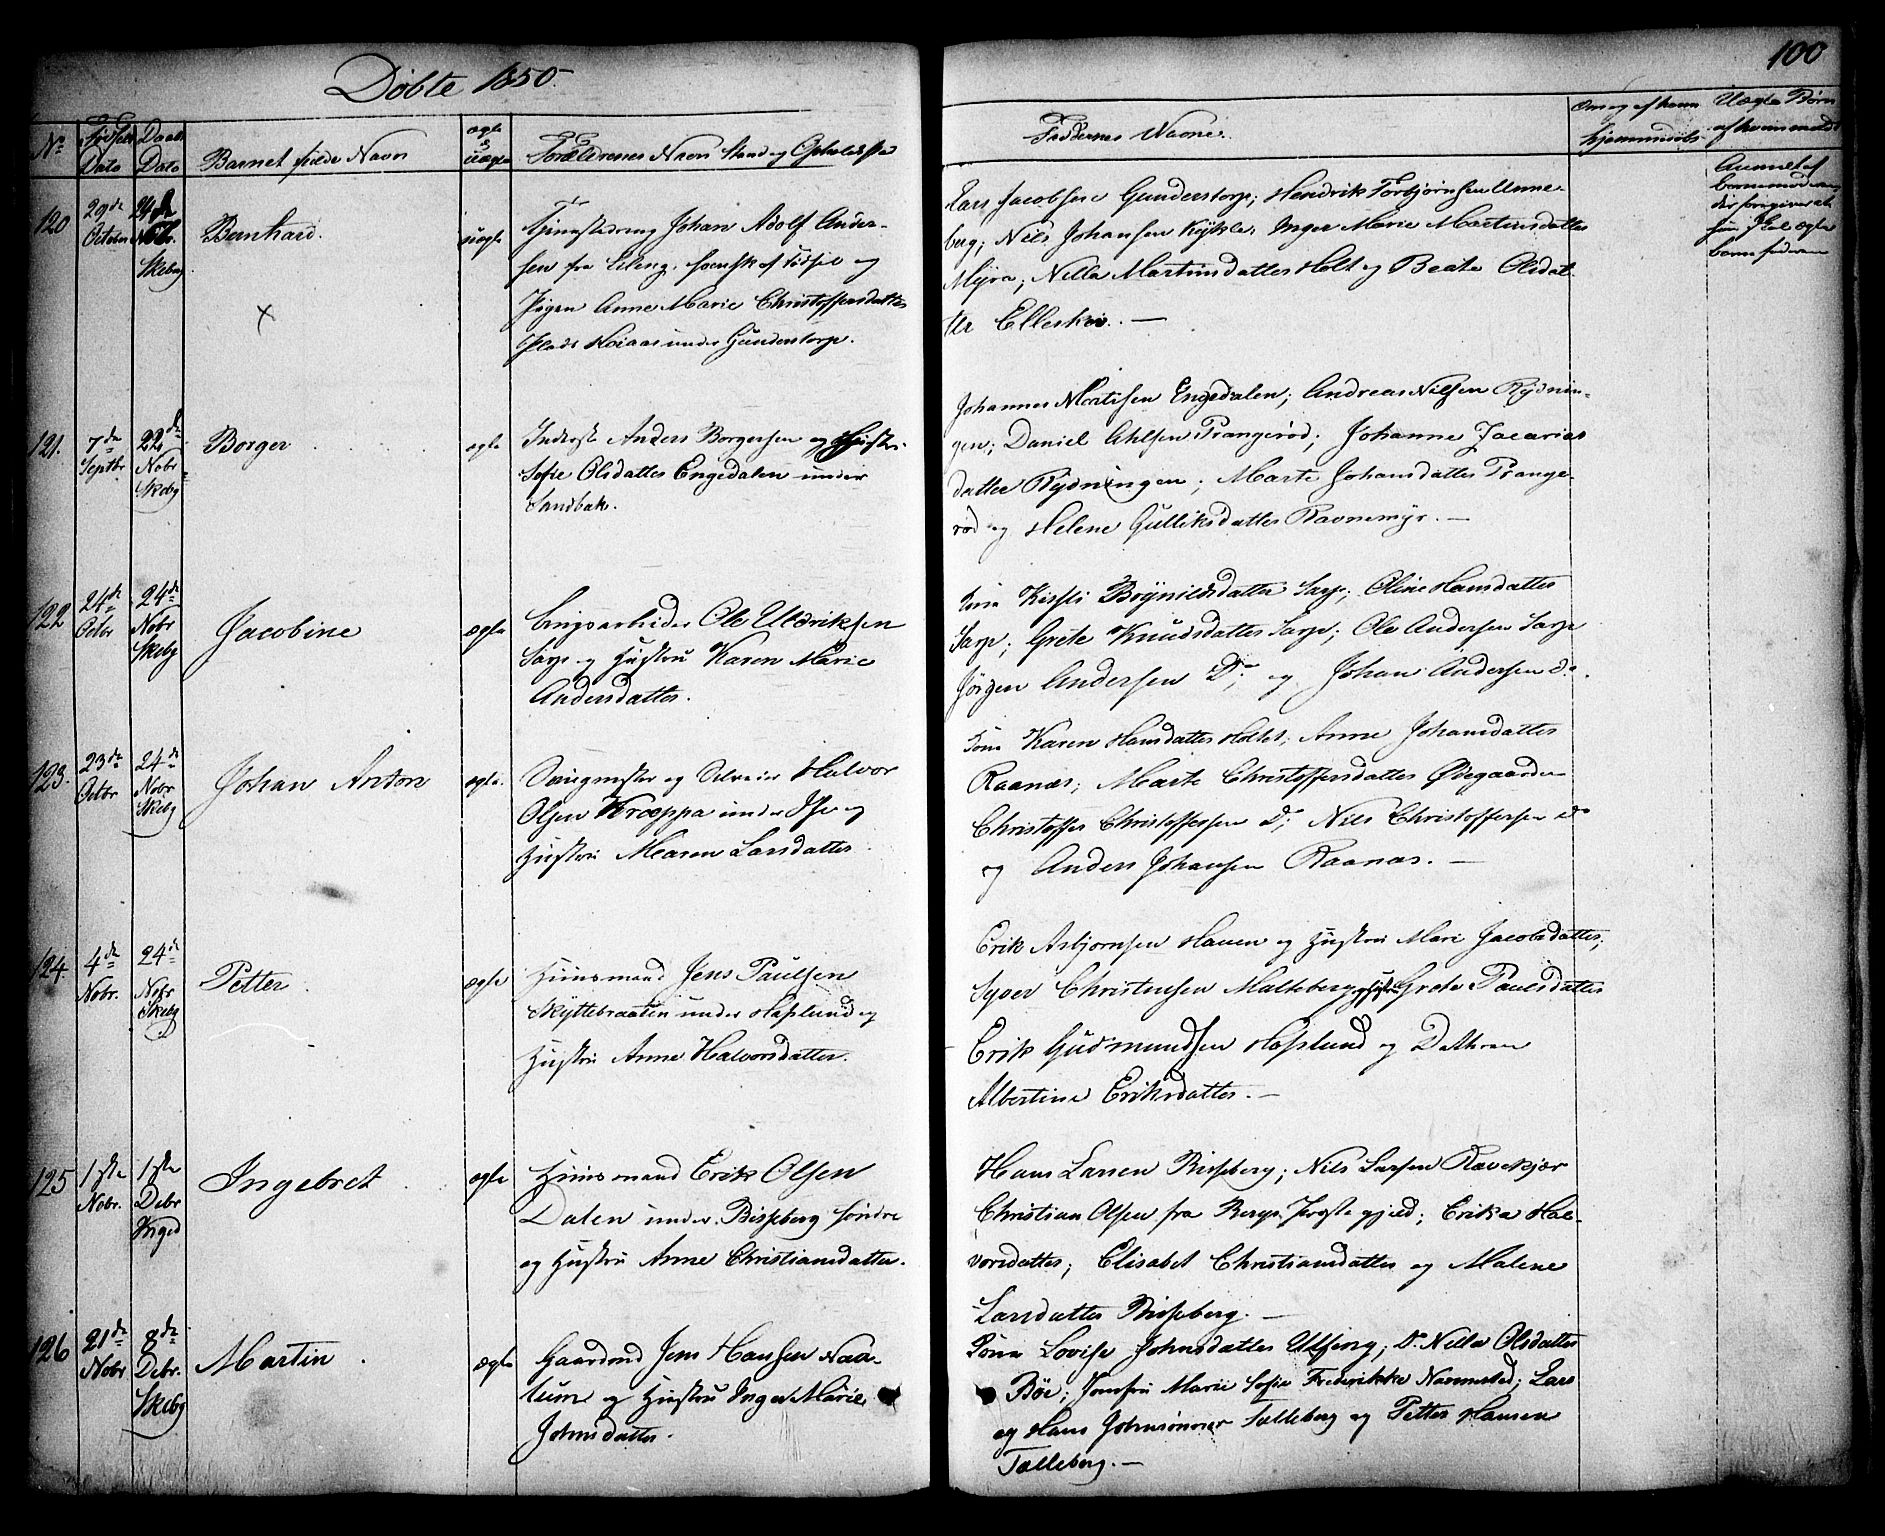 Døbte 1850.
100
No
Fødsels Dato
Daab Dato
Barnets fulde Navn
ægte uægte
Forældrenes Navn Stand og Opholdsted
Faddernes Navne.
Om og af hvem
hjemmedøbt
Uægte Børn
af hvem anmeldt
120
29de
Octobr
24de
Nobr.
Skeby
Bernhard.
uægte
Tjenestedreng Johan Adolf Ander-
sen fra Eleng, svensk af Fødsel og
Pigen Anne Marie Christoffersdatter
Plads under Gunderstorp.
Lars Jacobsen Gunderstorp; Hendrik Torbjørnsen Unne-
berg; Nils Johansen Kykler Inger Marie Martinsdatter
Myra; Nilla Martinsdatter Holt og Beate Olsdat
ter
Anmeldt af
barnemoderen
der
sin ægte
barnefader
121.
7de
Septbr
22de
Nobr
Skeby
Borger
ægte
Inderst Anders Borgersen og Hustru
Sofie Olsdatter Engedalen under
Sandbak.
Johannes Engedalen; Andreas Nilsen Rydnin-
gen; Daniel Ohlsen Prangerød; Johanne Zacarias
datter Rydningen; Marte Johansdatter Prange-
rød og Helene Gulliksdatter Ravnemyr. —
122
24de
Octbr
24de
Nobr
Skeby
Jacobine
ægte
Brugsarbeider Ole Uldriksen
Sarp og Hustru Karen Marie
Andersdatter.
Kone Kirsti Brynildsdatter Sarp; Oline Hansdatter
Sarp; Grete Knudsdatter Sarp; Ole Andersen Sarp
Jørgen Andersen Do; og Johan Andersen do.
123.
23de
Octbr
24de
Nobr
Skeby
Johan Anton
ægte.
og Selveier Halvor
Olsen Kræppa under og
Hustru Maren Larsdatter.
Kone Karen Hansdatter Holtet; Anne Johansdatter
Raanæs; Marte Christoffersdatter Ødegaarden
Christoffer Christoffersen Do; Nils Christoffersen do
og Anders Johansen Raanæs. —
124.
4de
Nobr.
24de
Nobr
Skeby
Petter.
ægte
Huusmand Jens Paulsen
Skyttebraaten under Haslund og
Hustru Anne Halvorsdatter.
Erik Asbjørnsen Hauen og Hustru Mari Jacobsdatter;
Syver Christensen Malteberg og Hustru Grete Paulsdatter
Erik Gudmundsen Haslund og Datteren
Albertine Eriksdatter. —
125
1ste
Nobr.
1ste
Debr
Ingebret
ægte
Huusmand Erik Olsen
Dalen under Bisseberg søndre
og Hustru Anne Christiansdatter.
Hans Larsen Bisseberg; Nils Larsen Ravekjær
Christian Olsen fra Bergs Præstegjeld; Erika Hal-
vorsdatter; Elisabet Christiansdatter og Malene
Larsdatter Bisseberg. —
126
21de
Nobr
8de
Debr.
Skeby
Martin
ægte
Gaardmd Jens Hansen Naa-
tum og Hustru Inger Marie
Johnsdatter.
Kone Lovise Johnsdatter; Do. Nilla Olsdatter
Bøe; Jomfru Marie Sofie Frederikke Nannestad; Lars
og Hans Johnsønner Tælleberg og Petter Hansen
Tælleberg. —